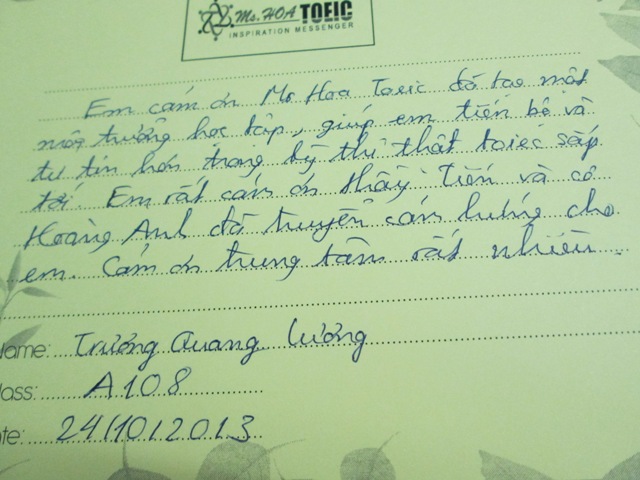 Ms. HOA TOEIC
INSPIRATION MESSENGER
Em cám ơn Ms Hoa Toeic đã tạo một
môi trường học tập, giúp em tiến bộ và
tự tin hơn trong kỳ thi thật toiec sắp
tới. Em rất cám ơn thầy Tiến và cô
Hoàng Anh đã truyền cảm hứng cho
em. Cám ơn trung tâm rất nhiều.
Name: Trương Quang Lương
lass: A108
te: 24/10/2013